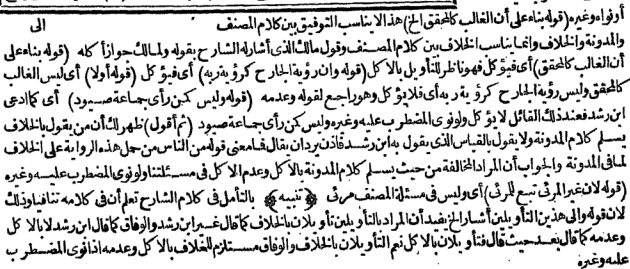 أو نواه وغيره (قوله بناء على أن الغالب كالمحقق الخ) هذا لا يناسب التوفيق بين كلام المصنف الى
والمدونة والخلاف وانما يناسب الخلاف بين كلام المصنف وقول مالك الذى أشار له الشارح بقوله ولمالك جواز أكله (قوله بناء على
أن الغالب كالمحقق) أى فيؤكل فهو ناظر للتأويل بالأكل (قوله وان رؤية الجارح كرؤية ربه) أى فيؤكل (قوله أولا) أى ليس الغالب
كالمحقق وليس رؤية الجارح كرؤية ربه أى فلا يؤكل وهو راجع لقوله وعدمه (قوله وليس كمن رأى جماعة صيود) أى كما ادعى
ابن رشد فعند ذلك القائل لا يؤكل ولو نوى المضطرب عليه وغيره وليس كمن رأى جماعة صيود (ثم أقول) ظهر لك أن من يقول بالخلاف
يسلم كلام المدونة ولا يقول بالقياس الذى يقول به ابن رشد فاذن يرد أن يقال فما معنى قوله من الناس من حمل هذه الرواية على الخلاف
لما فى المدونة والجواب أن المراد المخالفة من حيث يسلم كلام المدونة بالأكل وعدم الاكل فى مسئلتنا ولو نوى المضطرب عليه وغيره
(قوله لان غير المرئى تبع للمرئى) أى وليس فى مسئلة المصنف مرئى ﴿تنبيه﴾ بالتأمل فى كلام الشارح تعلم أن فى كلامه تنافيا وذلك
لان قوله والى هذين التأويلين أشار الخ يفيد أن المراد بالتأويلين تأويلان بالخلاف كما قال غير ابن رشد والوفاق كما قال ابن رشد لا بالاكل
وعدمه كما قال بعد حيث قال فتأويلان بالاكل نعم التأويلان بالخلاف والوفاق مستلزم للخلاف بالاكل وعدمه اذا نوى المضطرب
عليه وغيره